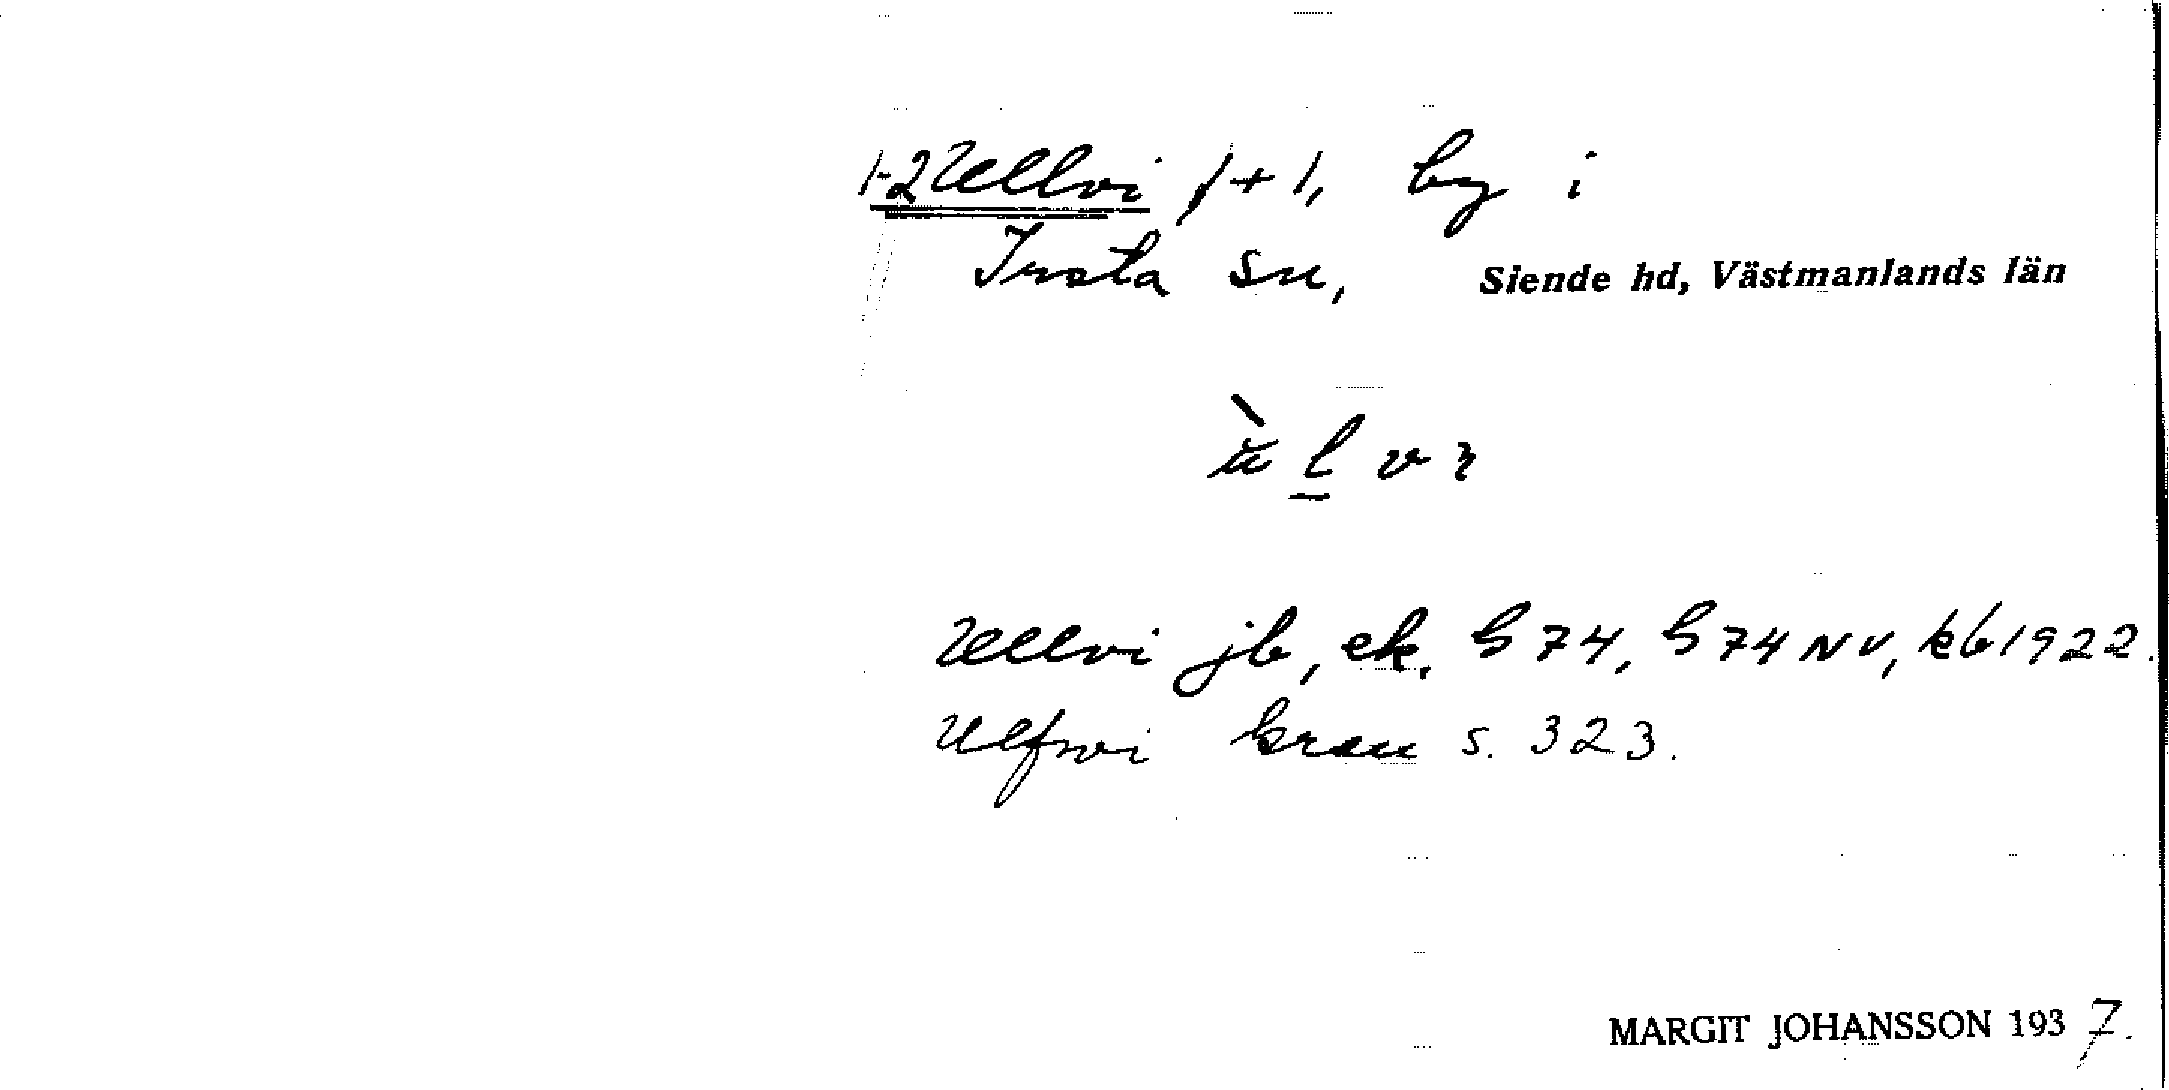 1-2 Ullvi 1+1, by i
Irsta sn, Siende hd, Västmanlands län
ŭ̀ l v ı
Ullvi jb, ek, G 74, G 74 NV, kb 1922.
Ulfvi Grau s. 323.
MARGIT JOHANSSON 1937.